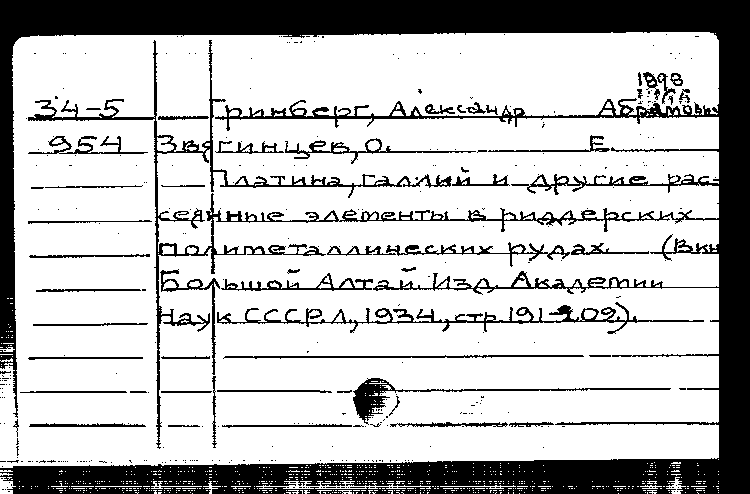 1898
34-5 Гринберг, Александр Абрамович
954 Звягинцев, О. Е.
Платина, галлий и другие рас-
сеянные элементы в риддерских
полиметаллических рудах. (В кн
Большой Алтай. Изд. Академии
Наук СССР. Л., 1934, стр. 191-209).